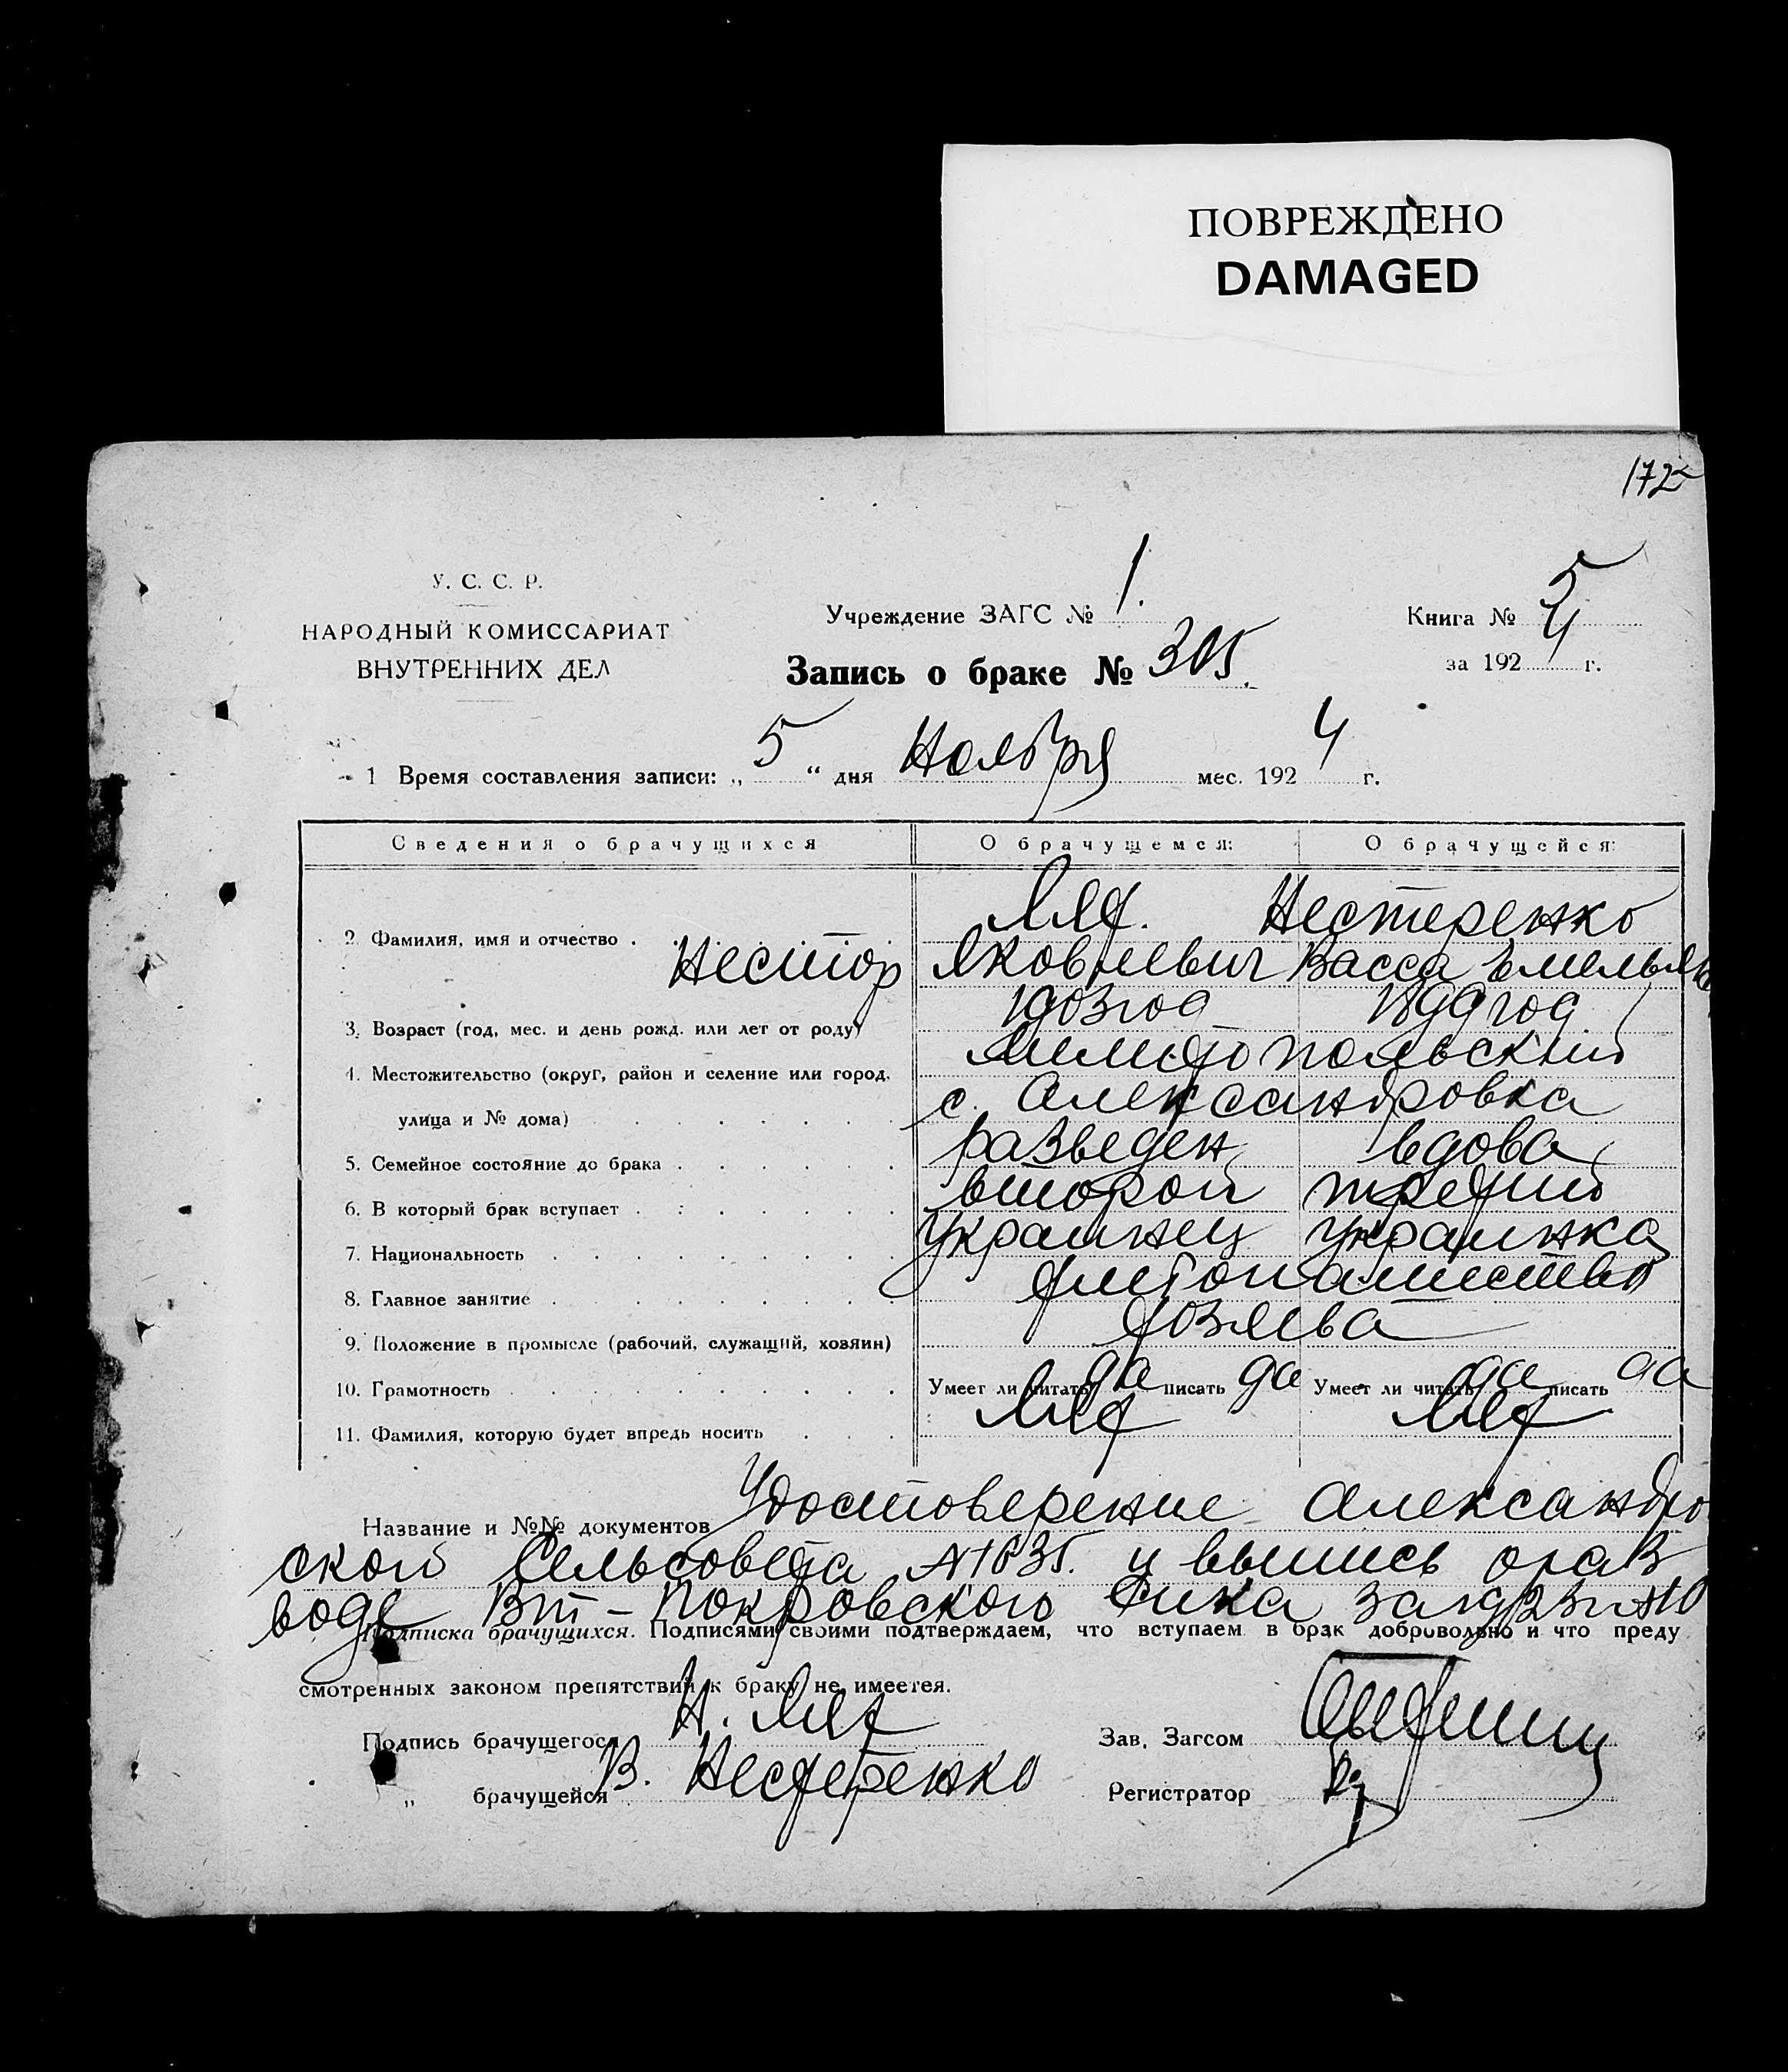 ПОВРЕЖДЕНО
DAMAGED
172
У. С. С. Р.
НАРОДНЫЙ КОМИССАРИАТ
ВНУТРЕННИХ ДЕЛ
Учреждение ЗАГС № 1.
Запись о браке № 305.
Книга № 5
за 192 4 г.
1 Время составления записи: „ 5 “ дня Ноября мес. 192 4 г.
Сведения о брачущихся О брачущемся: О брачущейся:
2. Фамилия, имя и отчество Лях. Нестеренко
Нестор Яковлевич Васса Емельян
3. Возраст (год, мес. и день рожд. или лет от роду) 1903 год год
4. Местожительство (округ, район и селение или город, Мелитопольский
улица и № дома) с. Александровка
5. Семейное состояние до брака разведен вдова
6. В который брак вступает второй третий
7. Национальность Украинец Украинка
8. Главное занятие
9. Положение в промысле (рабочий, служащий, хозяин) хозяева
10. Грамотность Умеет ли читать да писать да Умеет ли читать да писать да
11. Фамилия, которую будет впредь носить Лях Лях
Название и №№ документов Удостоверение Александро
ской Сельсовета и выпись о раз
воде Вт-Покровского
Подписка брачущихся. Подписями своими подтверждаем, что вступаем в брак добровольно и что преду
смотренных законом препятствий к браку не имеется.
Подпись брачущегося Н. Лях
Зав. Загсом
„ брачущейся В. Нестеренко
Регистратор